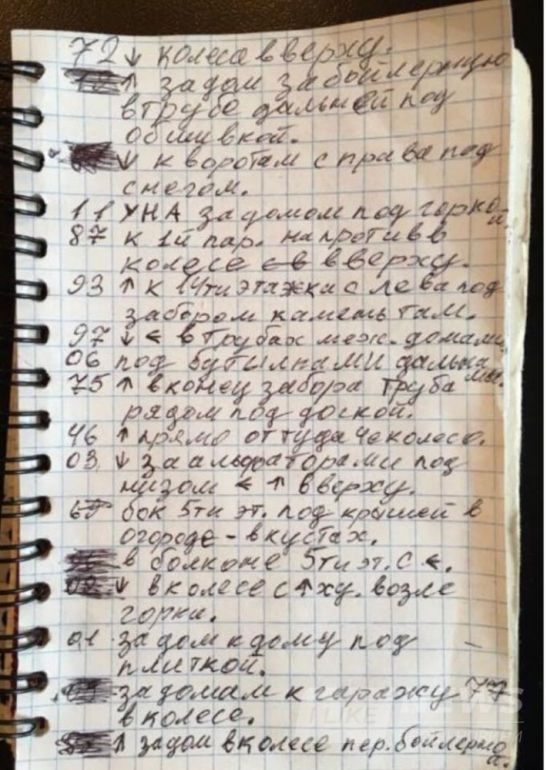 72 ↓ колеса вверху.
↑ за дом за бойлерную
в трубе дальней под
обшивкой.
↓ к воротам с права под
снегом.
11 УНА за домом под горкой.
87 к 1й пар. на против в
колесе вверху.
93 ↑ к 14ти этажки с лева под
забором камень там.
97 ↓ ← в трубах меж. домами
06 под бутилками дальнами.
75 ↑ в конец забора труба
рядом под доской.
46 ↑ прямо оттуда чеколесо.
03 ↓ за альфаторами под
низом ← ↑ вверху.
бок 5ти эт. под крышей в
огороде - в кустах.
в болконе 5ти эт. с ←.
↓ в колесе с ↑ху. возле
горки.
01 за дом к дому под -
плиткой.
за домам к гаражу 77
в колесе.
↑ за дом в колесе пер. бойлерной.